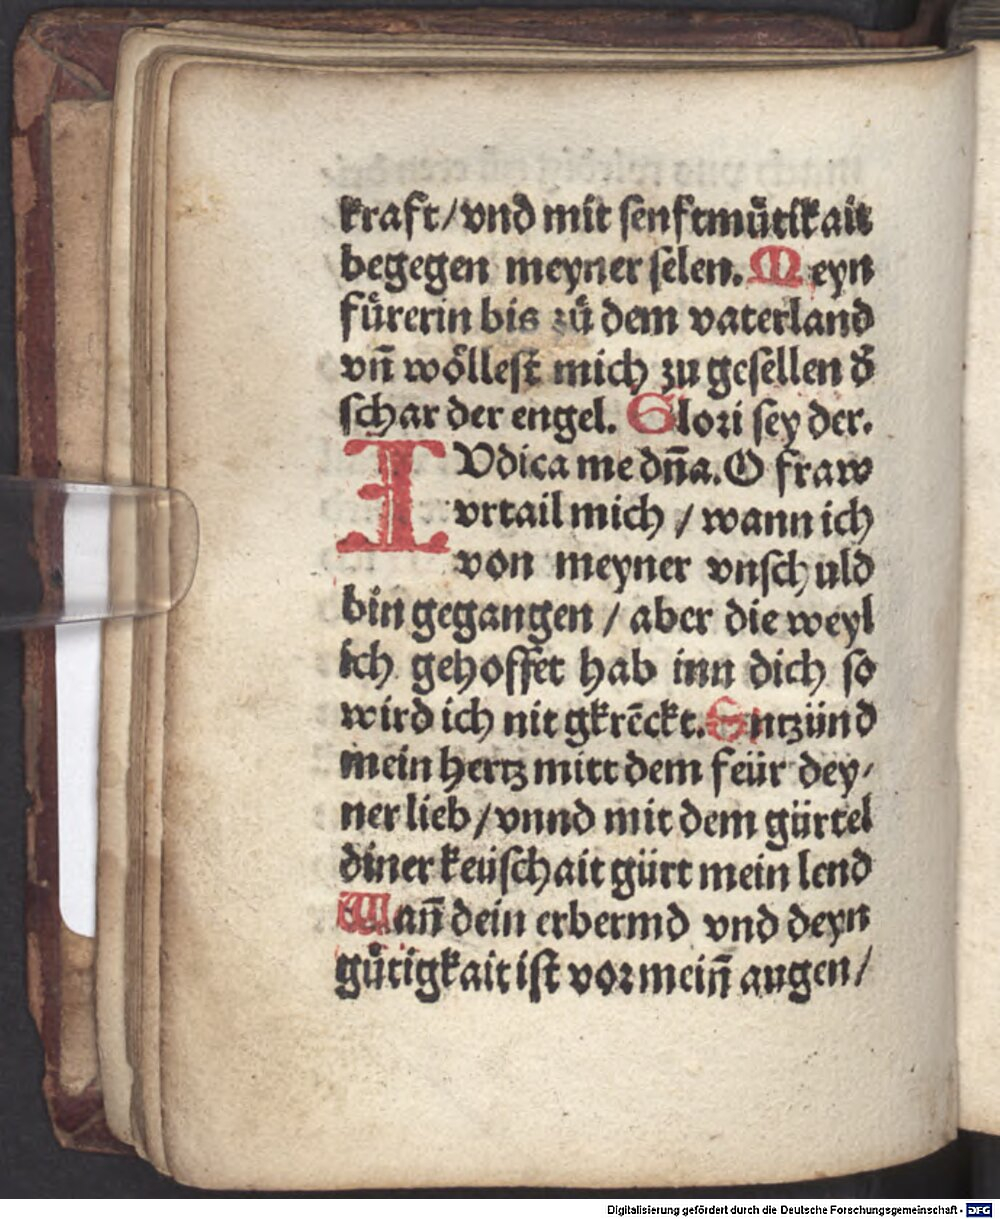 kraft/vnd mit senftmuͤtikait
begegen meyner selen. Meyn
fuͤrerin bis zuͤ dem vaterland
vñ woͤllest mich zu gesellen d̄
schar der engel. Glori sey der.
IVdica me dña. O fraw
vrtail mich / wann ich
von meyner vnschuld
bin gegangen / aber die weyl
ich gehoffet hab inn dich so
wird ich nit gkrēckt. Entzünd
mein hertz mitt dem feür dey⸗
ner lieb / vnnd mit dem gürtel
diner keüschait gürt mein lend
Wañ dein erbermd vnd deyn
guͤtigkait ist vor meiñ augen /
Digitalisierung gefördert durch die Deutsche Forschungsgemeinschaft - DFG